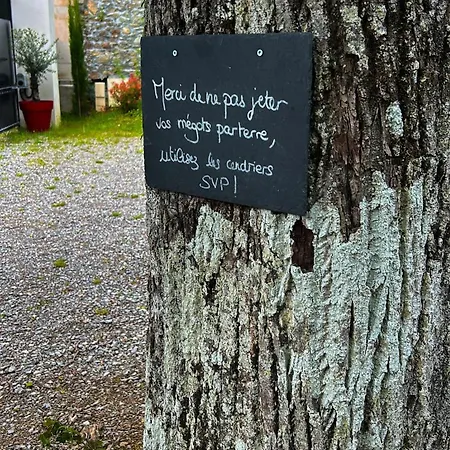 Merci de ne pas jeter
vos mégots parterre,
utilisez les cendriers
SVP!